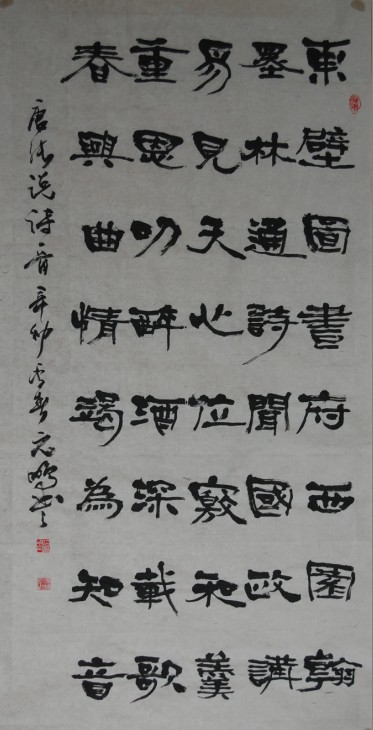 東壁圖書府西園翰
墨林通詩聞國政講
易見天心位竊和羹
重恩叨醉酒深載歌
春興曲情竭為知音
唐張說詩一首辛卯春書